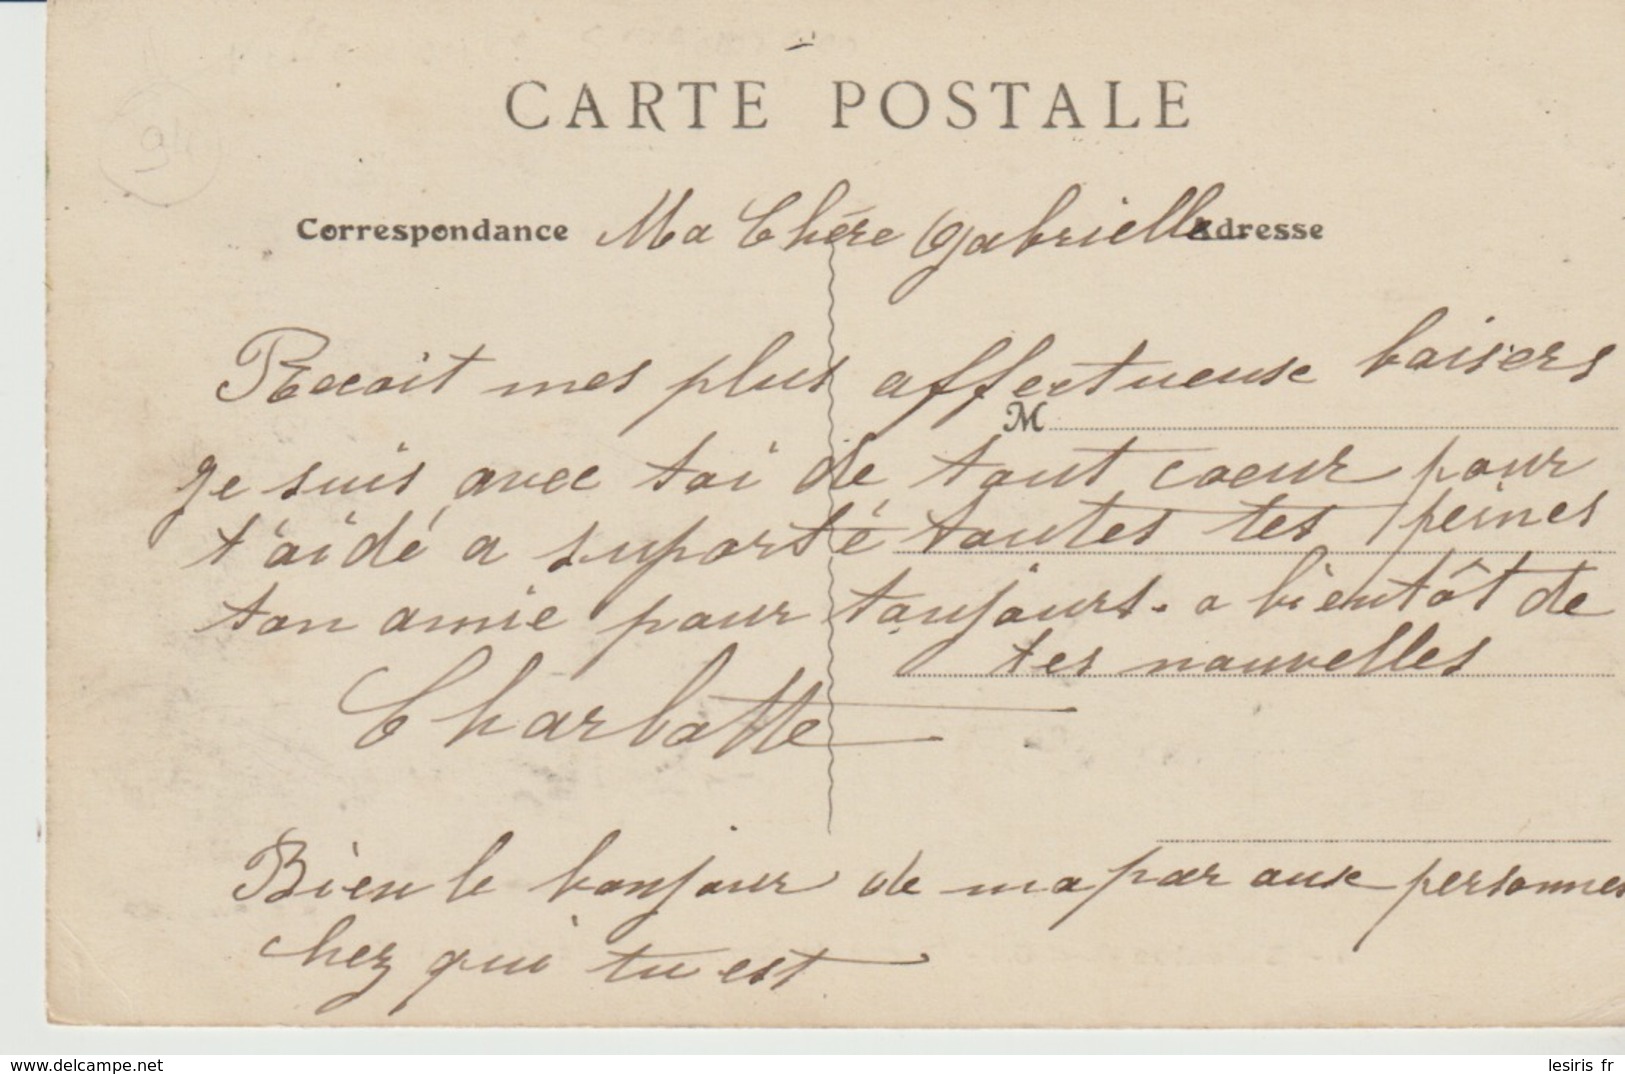 94
CARTE POSTALE
Correspondance Ma Chére Gabrielle Adresse
Recoit mes plus affectueuse baisers
M
je suis avec toi de tout coeur pour
t'aidé a suporté toutes tes peines
ton amie pour toujours. a bientôt de
tes nouvelles
Charlotte
Bien le bonjour de ma par aux personnes
chez qui tu est
www.delcampe.net
lesiris fr